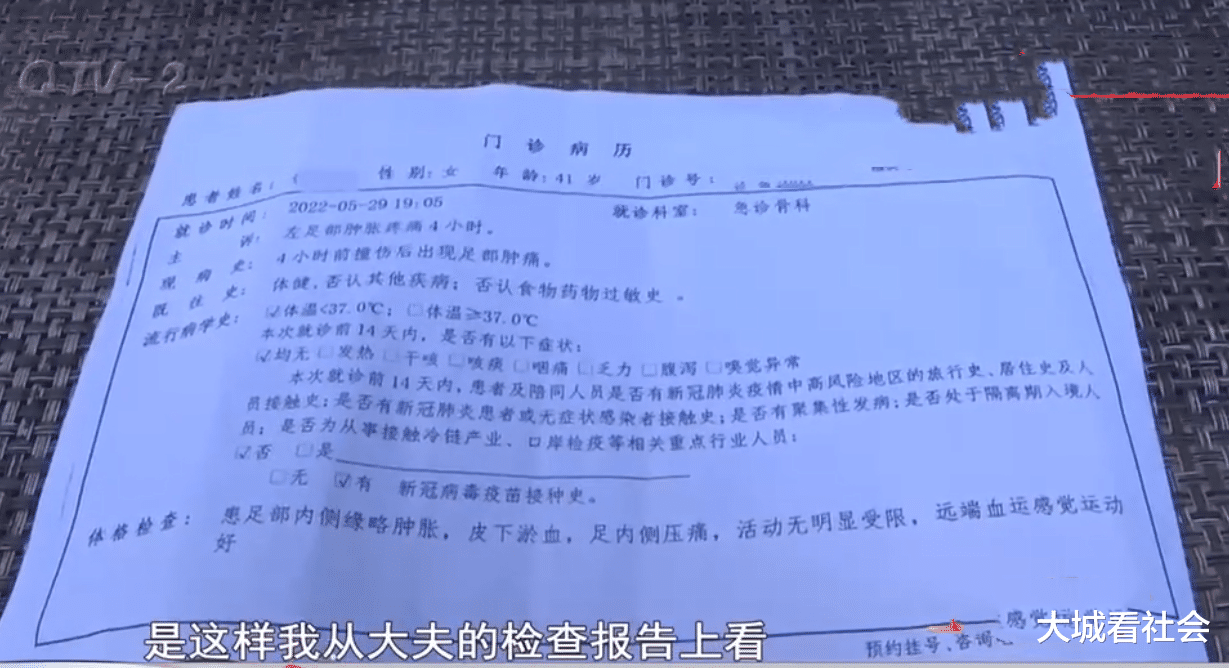 QTV-2
门诊病历
患者姓名： 性别：女 年龄：41岁 门诊号：
就诊时间： 2022-05-29 19:05 就诊科室： 急诊骨科
主诉： 左足部肿胀疼痛4小时。
现病史： 4小时前撞伤后出现足部肿痛。
既往史： 体健，否认其他疾病；否认食物药物过敏史 。
流行病学史： ☑体温<37.0℃；☐体温≥37.0℃
本次就诊前14天内，是否有以下症状：
☑均无☐发热☐干咳☐咳痰☐咽痛☐乏力☐腹泻☐嗅觉异常
本次就诊前14天内，患者及陪同人员是否有新冠肺炎疫情中高风险地区的旅行史、居住史及人
员接触史；是否有新冠肺炎患者或无症状感染者接触史；是否有聚集性发病；是否处于隔离期入境人
员；是否为从事接触冷链产业、口岸检疫等相关重点行业人员：
☑否 ☐是
☐无 ☑有 新冠病毒疫苗接种史。
体格检查： 患足部内侧缘略肿胀，皮下淤血，足内侧压痛，活动无明显受限，远端血运感觉运动
好
感觉
预约挂号、咨询
是这样我从大夫的检查报告上看
大城看社会